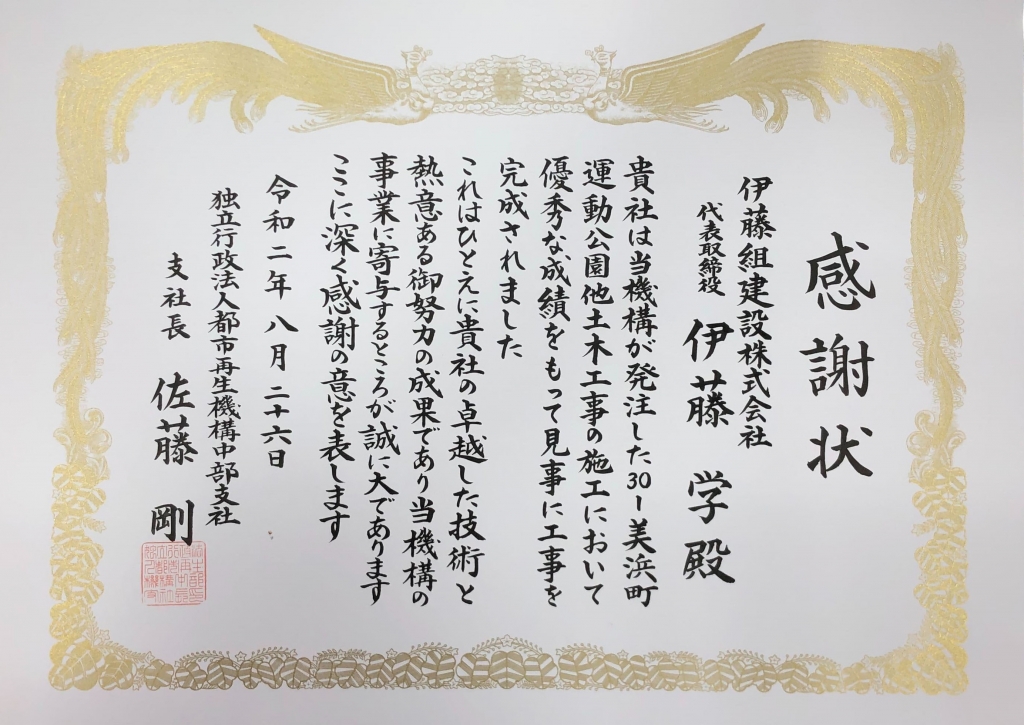 感謝状
伊藤組建設株式会社
代表取締役 伊藤 学殿
貴社は当機構が発注した30ー美浜町
運動公園他土木工事の施工において
優秀な成績をもって見事に工事を
完成されました
これはひとえに貴社の卓越した技術と
熱意ある御努力の成果であり当機構の
事業に寄与するところが誠に大であります
ここに深く感謝の意を表します
令和二年八月二十六日
独立行政法人都市再生機構中部支社
支社長 佐藤 剛